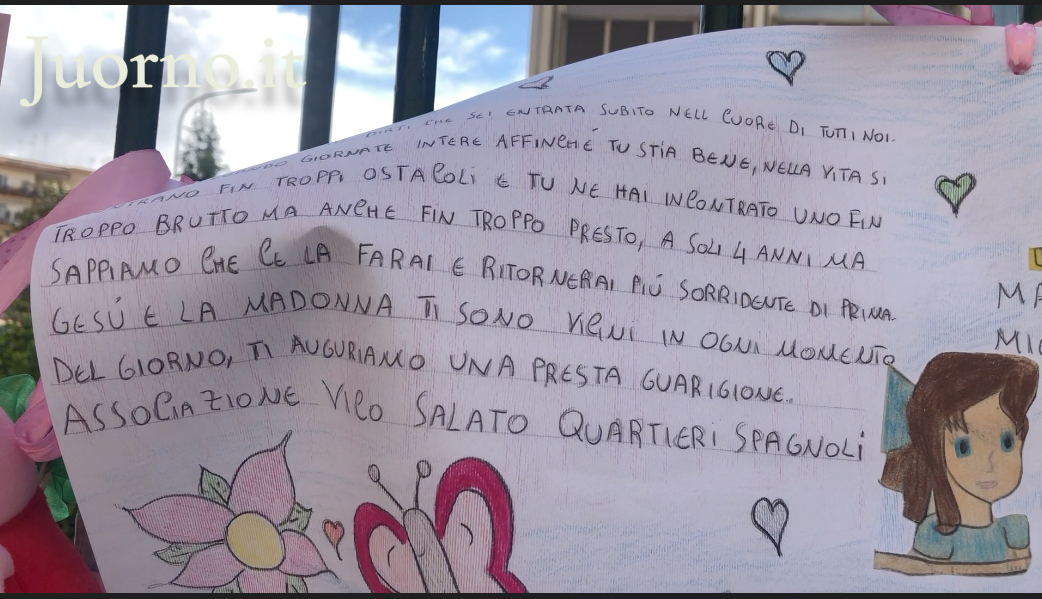 Juorno.it
DIRTI CHE SEI ENTRATA SUBITO NELL CUORE DI TUTTI NOI.
GIORNATE INTERE AFFINCHÉ TU STIA BENE, NELLA VITA SI
FIN TROPPI OSTACOLI E TU NE HAI INCONTRATO UNO FIN
TROPPO BRUTTO MA ANCHE FIN TROPPO PRESTO, A SOLI 4 ANNI MA
SAPPIAMO CHE CE LA FARAI E RITORNERAI PIÚ SORRIDENTE DI PRIMA.
GESÚ E LA MADONNA TI SONO VICINI IN OGNI MOMENTO
DEL GIORNO, TI AUGURIAMO UNA PRESTA GUARIGIONE..
ASSOCIAZIONE VICO SALATO QUARTIERI SPAGNOLI